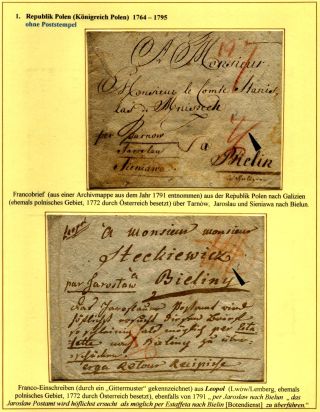 1. Republik Polen (Königreich Polen) 1764 – 1795
ohne Poststempel
A Monsieur
Monsieur le Comte Stanis
las de Mniszech
per Tarnow
Jaroslau
Sieniawa
à
Francobrief (aus einer Archivmappe aus dem Jahr 1791 entnommen) aus der Republik Polen nach Galizien
(ehemals polnisches Gebiet, 1772 durch Österreich besetzt) über Tarnów, Jaroslau und Sieniawa nach Bielun.
Leopol
a Monsieur monsieur
Steckiewicz
par Jaroslaw Bieliny
Das Jaroslauer Postamt wird
höflichst ersucht
möglich per Esta
fette
erga Retour Recipisse
Franco-Einschreiben (durch ein „Gittermuster" gekennzeichnet) aus Leopol (Lwow/Lemberg, ehemals
polnisches Gebiet, 1772 durch Österreich besetzt), ebenfalls von 1791 „per Jaroslaw nach Bielun „ das
Jaroslau Postamt wird höflichst ersucht als möglich per Estaffeta nach Bielin [Botendienst] zu überführen."